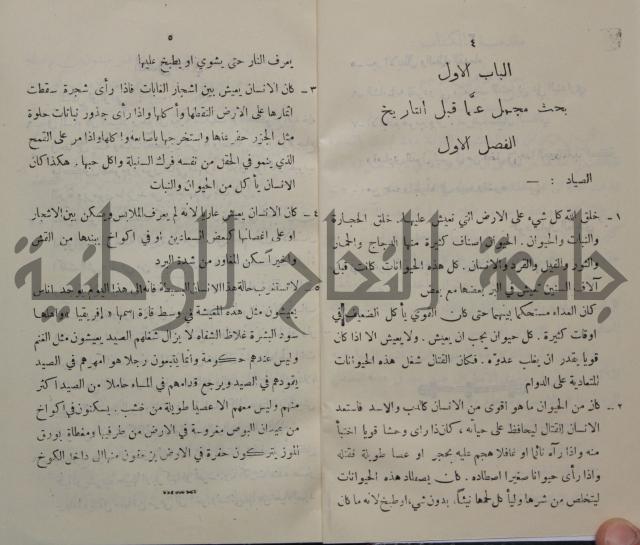 ٤
الباب الاول
بحث مجمل عمّا قبل التاريخ
الفصل الاول
الصياد : —
١ – خلق الله كل شيء على الارض التي نعيش عليها. خلق الحجارة
والنبات والحيوان. الحيوان اصناف كثيرة منها الدجاج والحمار
والثور والفيل والقرد والانسان. كل هذه الحيوانات كانت قبل
آلاف السنين تعيش في البر بعضها مع بعض
كان العداء مستحكما بينها حتى كان القوي يأكل الضعاف في
اوقات كثيرة. كل حيوان يجب ان يعيش. ولا يعيش الا اذا كان
قويا يقدر ان يغلب عدوّه. فكان القتال شغل هذه الحيوانات
للتعادية على الدوام
٢ – كان من الحيوان ما هو اقوى من الانسان كالدب والاسد فاستعد
الانسان للقتال ليحافظ على حياته، كان اذا رأى وحشا قويا اختبأ
منه واذا رآه نائما او غافلا هجم عليه بحجر او عصا طويلة فقتله
واذا رأى حيوانا صغيرا اصطاده. كان يصطاد هذه الحيوانات
ليتخلص من شرها وليأكل لحمها نيئا، بدون شيء او طبخ لانه ما كان
٥
يعرف النار حتى يشوي او يطبخ عليها
٣ – كان الانسان يعيش بين اشجار الغابات فاذا رأى شجرة سقطت
اثمارها على الارض التقطها وأكلها واذا رأى جذور نباتات حلوة
مثل الجزر حفر عنها واستخرجها باصابعه واكلها واذا مر على القمح
الذي ينمو في الحقل من نفسه فرك السنبلة واكل حبها، هكذا كان
الانسان يأكل من الحيوان والنبات
٤ – كان الانسان يعيش عاريا لانه لم يعرف الملابس ويسكن بين الاشجار
او على اغصانها كبعض السعادين او في اكواخ يبنيها من القش
واخيرا سكن المغاور من شدة البرد
٥ لا تستغرب حالة هذا الانسان البسيطة فانه الى هذا اليوم يوجد اناس
يعيشون مثل هذه المعيشة في وسط قارة اسمها « إفريقيا » واهلها
سود البشرة غلاظ الشفاه لا يزال شغلهم الصيد يعيشون مثل الغنم
وليس عندهم حكومة وانما يتبعون رجلا هو امهرهم في الصيد
يقودهم في الصيد ويرجع قدامهم في المساء حاملا من الصيد اكثر
منهم وليس معهم الا عصيا طويلة من خشب. يسكنون في اكواخ
من عيدان البوص مغروسة في الارض من طرفيها ومغطاة بورق
الموز يتركون حفرة في الارض يزحفون منها الى داخل الكوخ
جامعة النجاح الوطنية